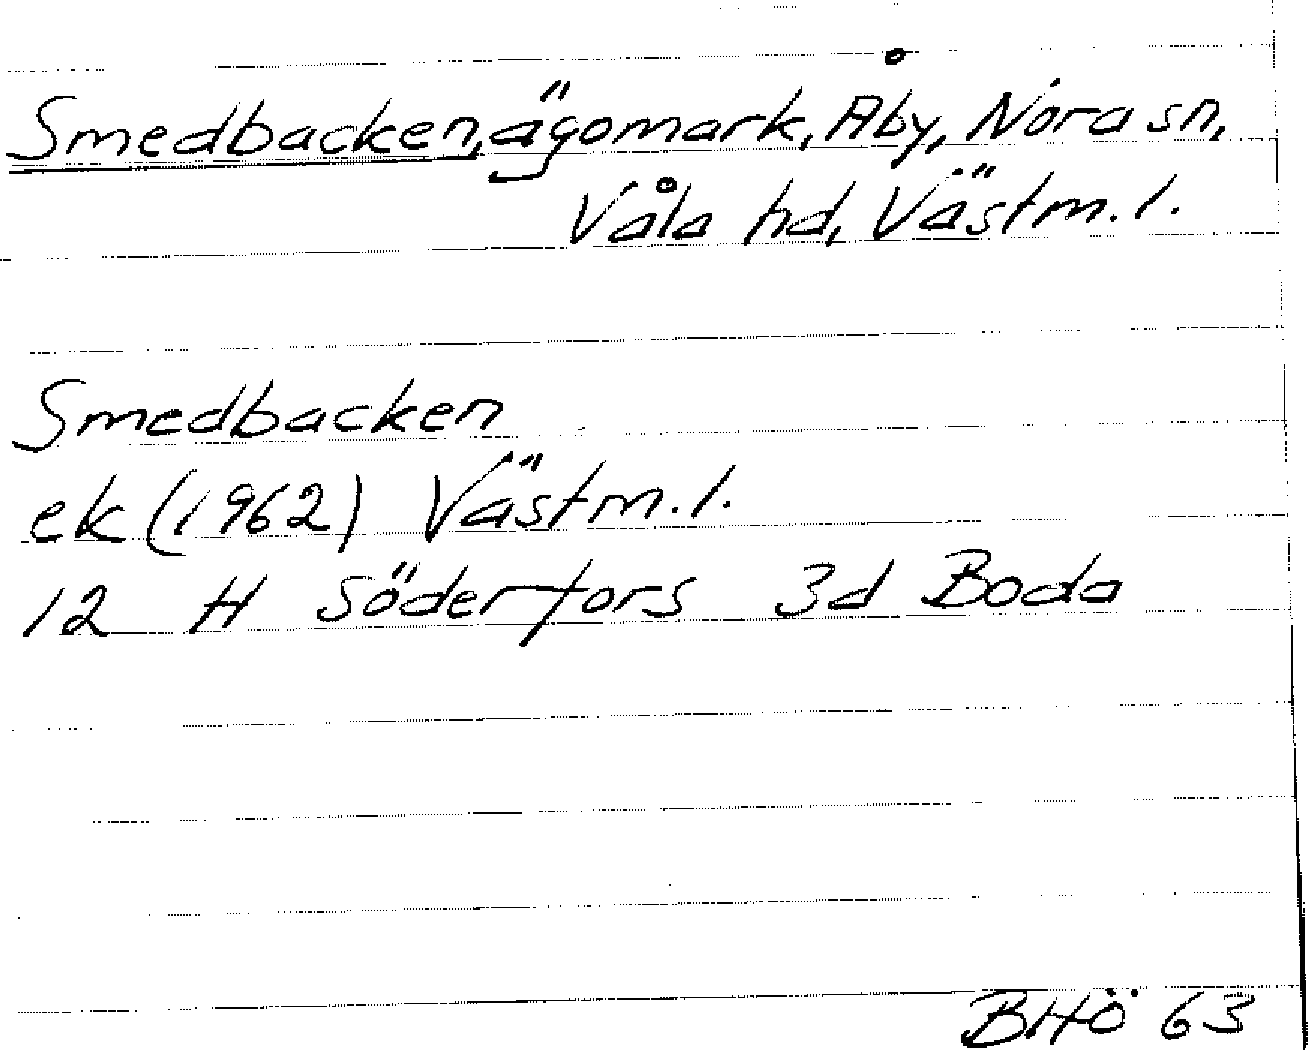 Smedbacken, ägomark, Åby, Nora sn,
Våla hd, Västm. l.
Smedbacken
ek (1962) Västm. l.
12 H Söderfors 3d Boda
BHÖ 63